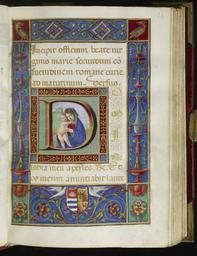 Incipit officium beate vir
ginis marie secundum co
suetudinem romane curie.
ad matutinum. Versus.
D
labia mea aperies. Et
os meum annuntiabit laude